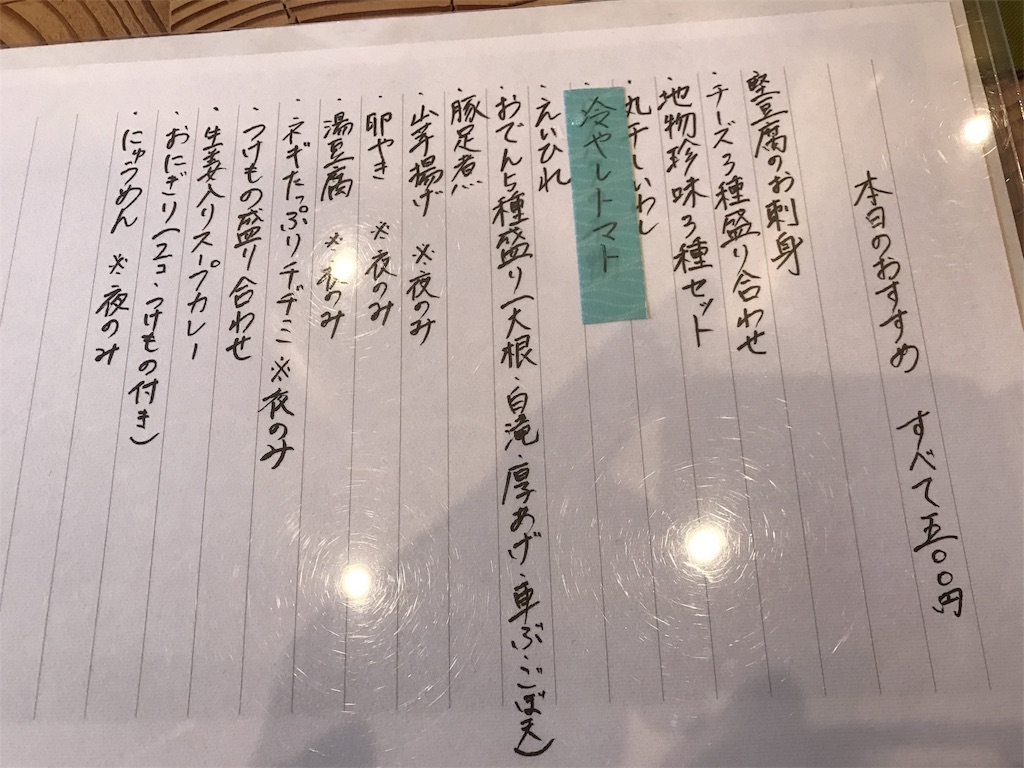 本日のおすすめ すべて五〇〇円
堅豆腐のお刺身
・チーズ3種盛り合わせ
・地物珍味3種セット
・丸干しいわし
冷やしトマト
・えいひれ
・おでん5種盛り(大根・白滝・厚あげ・車ぶ・ごぼ天)
豚足煮
・山芋揚げ ※夜のみ
・卵やき ※夜のみ
・湯豆腐 ※夜のみ
・ネギたっぷりチヂミ ※夜のみ
・つけもの盛り合わせ
・生姜入りスープカレー
・おにぎり(2コ・つけもの付き)
・にゅうめん ※夜のみ